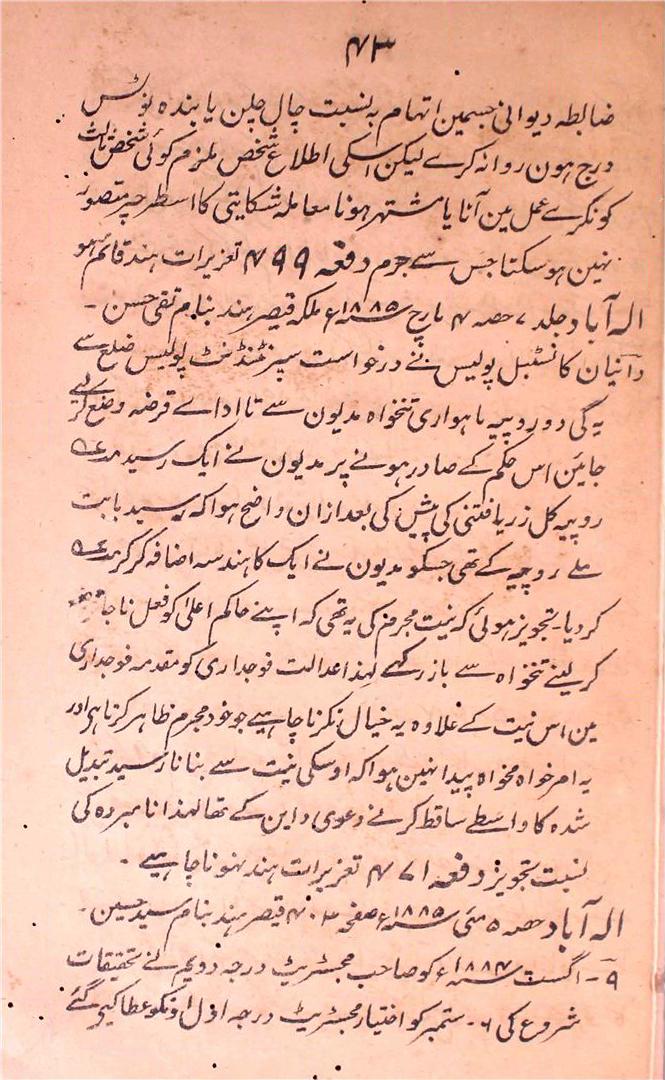 ۴۳
ضابطہ دیوانی جسمین اتہام بہ نسبت چال چلن یا بندہ نوٹس
درج ہون روانہ کرے لیکن اسکی اطلاع شخص ملزم کوئی شخص ثالث
کو نکرے عمل مین آنا یا مشتہر ہونا معاملہ شکایتی کا اسطرحپر متصور
نہین ہوسکتا جس سے جرم دفعہ ۴۹۹ تعزیرات ہند قائم ہو
الہ آباد جلد ۷ حصہ ۴ مارچ سنہ ۱۸۸۵ء ملکہ قیصر ہند بنام تقی حسن ۔
دائنان کانسٹبل پولیس نے درخواست سپرنٹنڈنٹ پولیس ضلع سے
یہ کی دو روپیہ ماہواری تنخواہ مدیون سے تا اداے قرضہ وضع کرلیے
جائین اس حکم کے صادر ہونے پر مدیون نے ایک رسید
روپیہ کل زر یافتنی کی پیش کی بعد ازان واضح ہوا کہ رسید بابت
روپیہ کے تھی جسکو مدیون نے ایک کا ہندسہ اضافہ کرکر
کردیا ۔ تجویز ہوئی کہ نیت مجرم کی یہ تھی کہ اپنے حاکم اعلیٰ کو فعل ناجائز
کرلینے تنخواہ سے باز رکھے لہذا عدالت فوجداری کو مقدمہ فوجداری
مین اس نیت کے علاوہ یہ خیال نکرنا چاہیے جو خود مجرم ظاہر کرتا ہی اور
یہ امر خواہ مخواہ پیدا نہین ہوا کہ اوسکی نیت سے بنانا رسید تبدیل
شدہ کا واسطے ساقط کرنے دعوی داین کے تھا لہذا نامبردہ کی
نسبت تجویز دفعہ ۴۷۱ تعزیرات ہند نہونا چاہیے ۔
الہ آباد حصہ ۵ مئی سنہ ۱۸۸۵ء صفحہ ۴۰۳ قیصر ہند بنام سید حسین ۔
۹ ۔ اگست سنہ ۱۸۸۴ء کو صاحب مجسٹریٹ درجہ دویم نے تحقیقات
شروع کی ۶ ۔ ستمبر کو اختیار مجسٹریٹ درجہ اول اونکو عطا کیے گئے